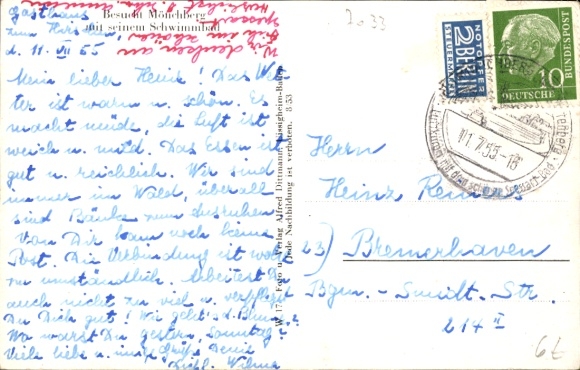 Gasthaus
zum Hirschen
d. 11. VII 55
Besucht Mönchberg
mit seinem Schwimmbad
Wir denken an
Dich
Mein lieber Heink! Das Wet-
ter ist warm u. schön. Es
macht müde, die Luft ist
weich u. mild. Das Essen ist
gut u. reichlich. Wir sind
immer im Wald, überall
sind Bänke zum Ausruhen
Von Dir kam noch keine
Post. Die Verbindung ist wohl
zu umständlich. Arbeitest Du
auch nicht zu viel u. verpflegst
Du Dich gut? Wie geht's d. Blumen?
Wo warst Du gestern, Sonntag?
Viele liebe u. Grüße Deine
Wilma
W. 172 Foto u. Verlag Alfred Dittmann, Küssigheim-Baden
Jede Nachbildung ist verboten. 8 53
2033
NOTOPFER
2 BERLIN
STEUERMARKE
10
DEUTSCHE BUNDESPOST
11.7.55.-18
Herrn
Heinz
23) Bremerhaven
Bgm.-Smidt-Str.
214 II
67